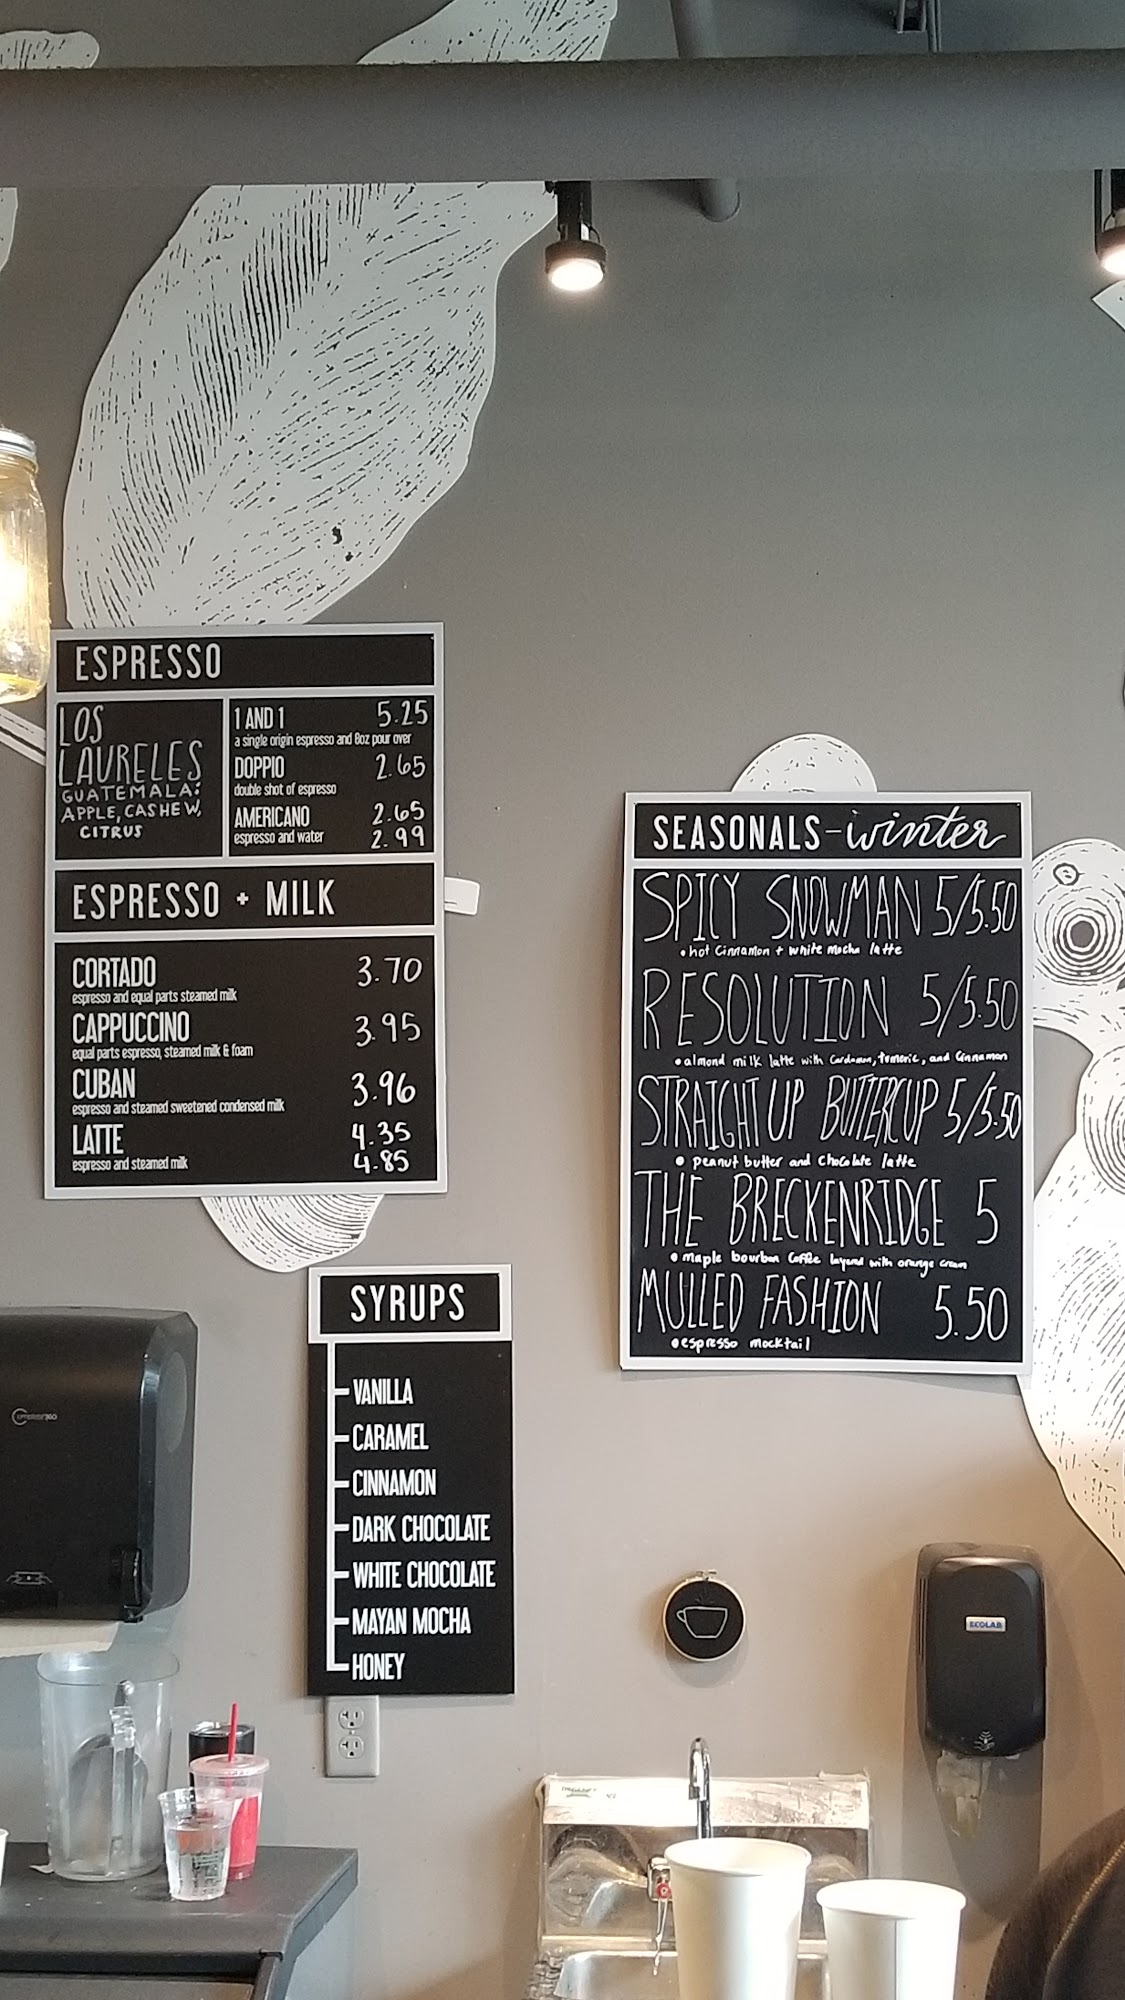 ESPRESSO
LOS
LAURELES
GUATEMALA:
APPLE, CASHEW,
CITRUS
1 AND 1 5.25
a single origin espresso and 8oz pour over
DOPPIO 2.65
double shot of espresso
AMERICANO 2.65
espresso and water 2.99
ESPRESSO + MILK
CORTADO 3.70
espresso and equal parts steamed milk
CAPPUCCINO 3.95
equal parts espresso, steamed milk & foam
CUBAN 3.96
espresso and steamed sweetened condensed milk
LATTE 4.35
espresso and steamed milk 4.85
SEASONALS - winter
SPICY SNOWMAN 5/5.50
• hot Cinnamon + white mocha latte
RESOLUTION 5/5.50
• almond milk latte with Cardamom, tumeric, and Cinnamon
STRAIGHT UP BUTTERCUP 5/5.50
• peanut butter and chocolate latte
THE BRECKENRIDGE 5
• maple bourbon coffee layered with orange cream
MULLED FASHION 5.50
• espresso mocktail
SYRUPS
VANILLA
CARAMEL
CINNAMON
DARK CHOCOLATE
WHITE CHOCOLATE
MAYAN MOCHA
HONEY
ECOLAB